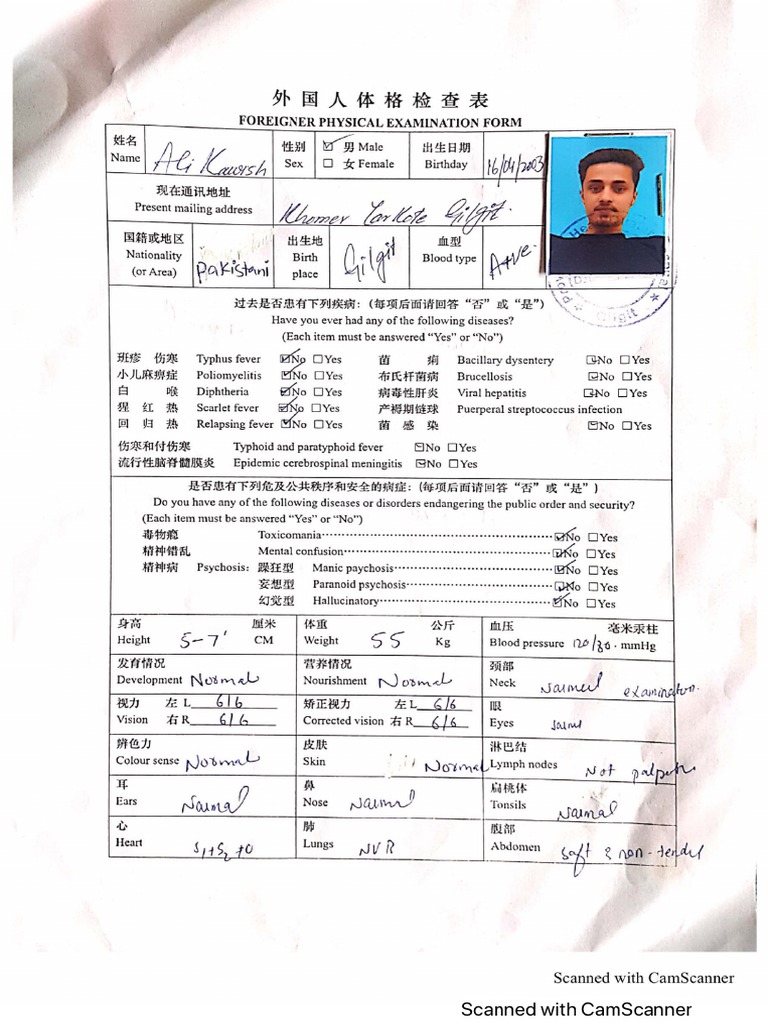 外国人体格检查表
FOREIGNER PHYSICAL EXAMINATION FORM
姓名 Name Ali Kawish 性别 Sex ☑ 男 Male □ 女 Female 出生日期 Birthday 16/04/2003
现在通讯地址
Present mailing address Khomer Yarkote Gilgit.
国籍或地区 Nationality (or Area) Pakistani 出生地 Birth place Gilgit 血型 Blood type A+ve
Gilgit
过去是否患有下列疾病:(每项后面请回答“否”或“是”)
Have you ever had any of the following diseases?
(Each item must be answered “Yes” or “No”)
班疹 伤寒 Typhus fever ☑No □Yes 菌 痢 Bacillary dysentery ☑No □Yes
小儿麻痹症 Poliomyelitis ☑No □Yes 布氏杆菌病 Brucellosis ☑No □Yes
白 喉 Diphtheria ☑No □Yes 病毒性肝炎 Viral hepatitis ☑No □Yes
猩 红 热 Scarlet fever ☑No □Yes 产褥期链球 Puerperal streptococcus infection
回 归 热 Relapsing fever ☑No □Yes 菌 感 染 ☑No □Yes
伤寒和付伤寒 Typhoid and paratyphoid fever ☑No □Yes
流行性脑脊髓膜炎 Epidemic cerebrospinal meningitis ☑No □Yes
是否患有下列危及公共秩序和安全的病症:(每项后面请回答“否”或“是”)
Do you have any of the following diseases or disorders endangering the public order and security?
(Each item must be answered “Yes” or “No”)
毒物瘾 Toxicomania ☑No □Yes
精神错乱 Mental confusion ☑No □Yes
精神病 Psychosis: 躁狂型 Manic paychosis ☑No □Yes
妄想型 Paranoid psychosis ☑No □Yes
幻觉型 Hallucinatory ☑No □Yes
身高 厘米 体重 公斤 血压 毫米汞柱
Height 5-7' CM Weight 55 Kg Blood pressure 120/80 mmHg
发育情况 营养情况 颈部
Development Normal Nourishment Normal Neck Normal examination.
视力 左 L 6/6 矫正视力 左 L 6/6 眼
Vision 右 R 6/6 Corrected vision 右 R 6/6 Eyes
辨色力 皮肤 淋巴结
Colour sense Normal Skin Normal Lymph nodes Not
耳 鼻 扁桃体
Ears Normal Nose Normal Tonsils Normal
心 肺 腹部
Heart S1+S2+0 Lungs NVR Abdomen Soft & non-tender
Scanned with CamScanner
Scanned with CamScanner